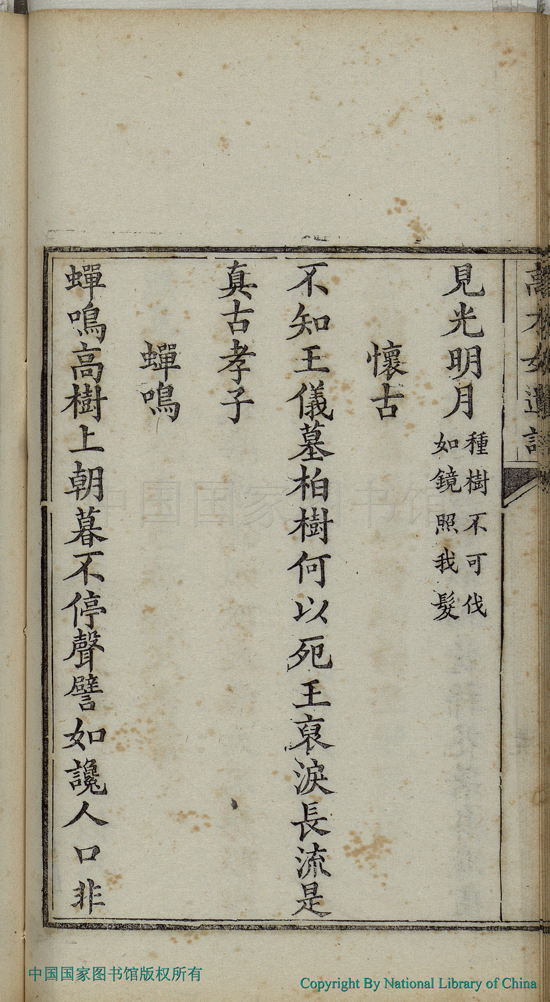 見光明月
種樹不可伐
如鏡照我髮
懷古
不知王儀墓柏樹何以死王裒淚長流是
真古孝子
蟬鳴
蟬鳴高樹上朝暮不停聲譬如讒人口非
中国国家图书馆
中国国家图书馆版权所有
Copyright By National Library of China